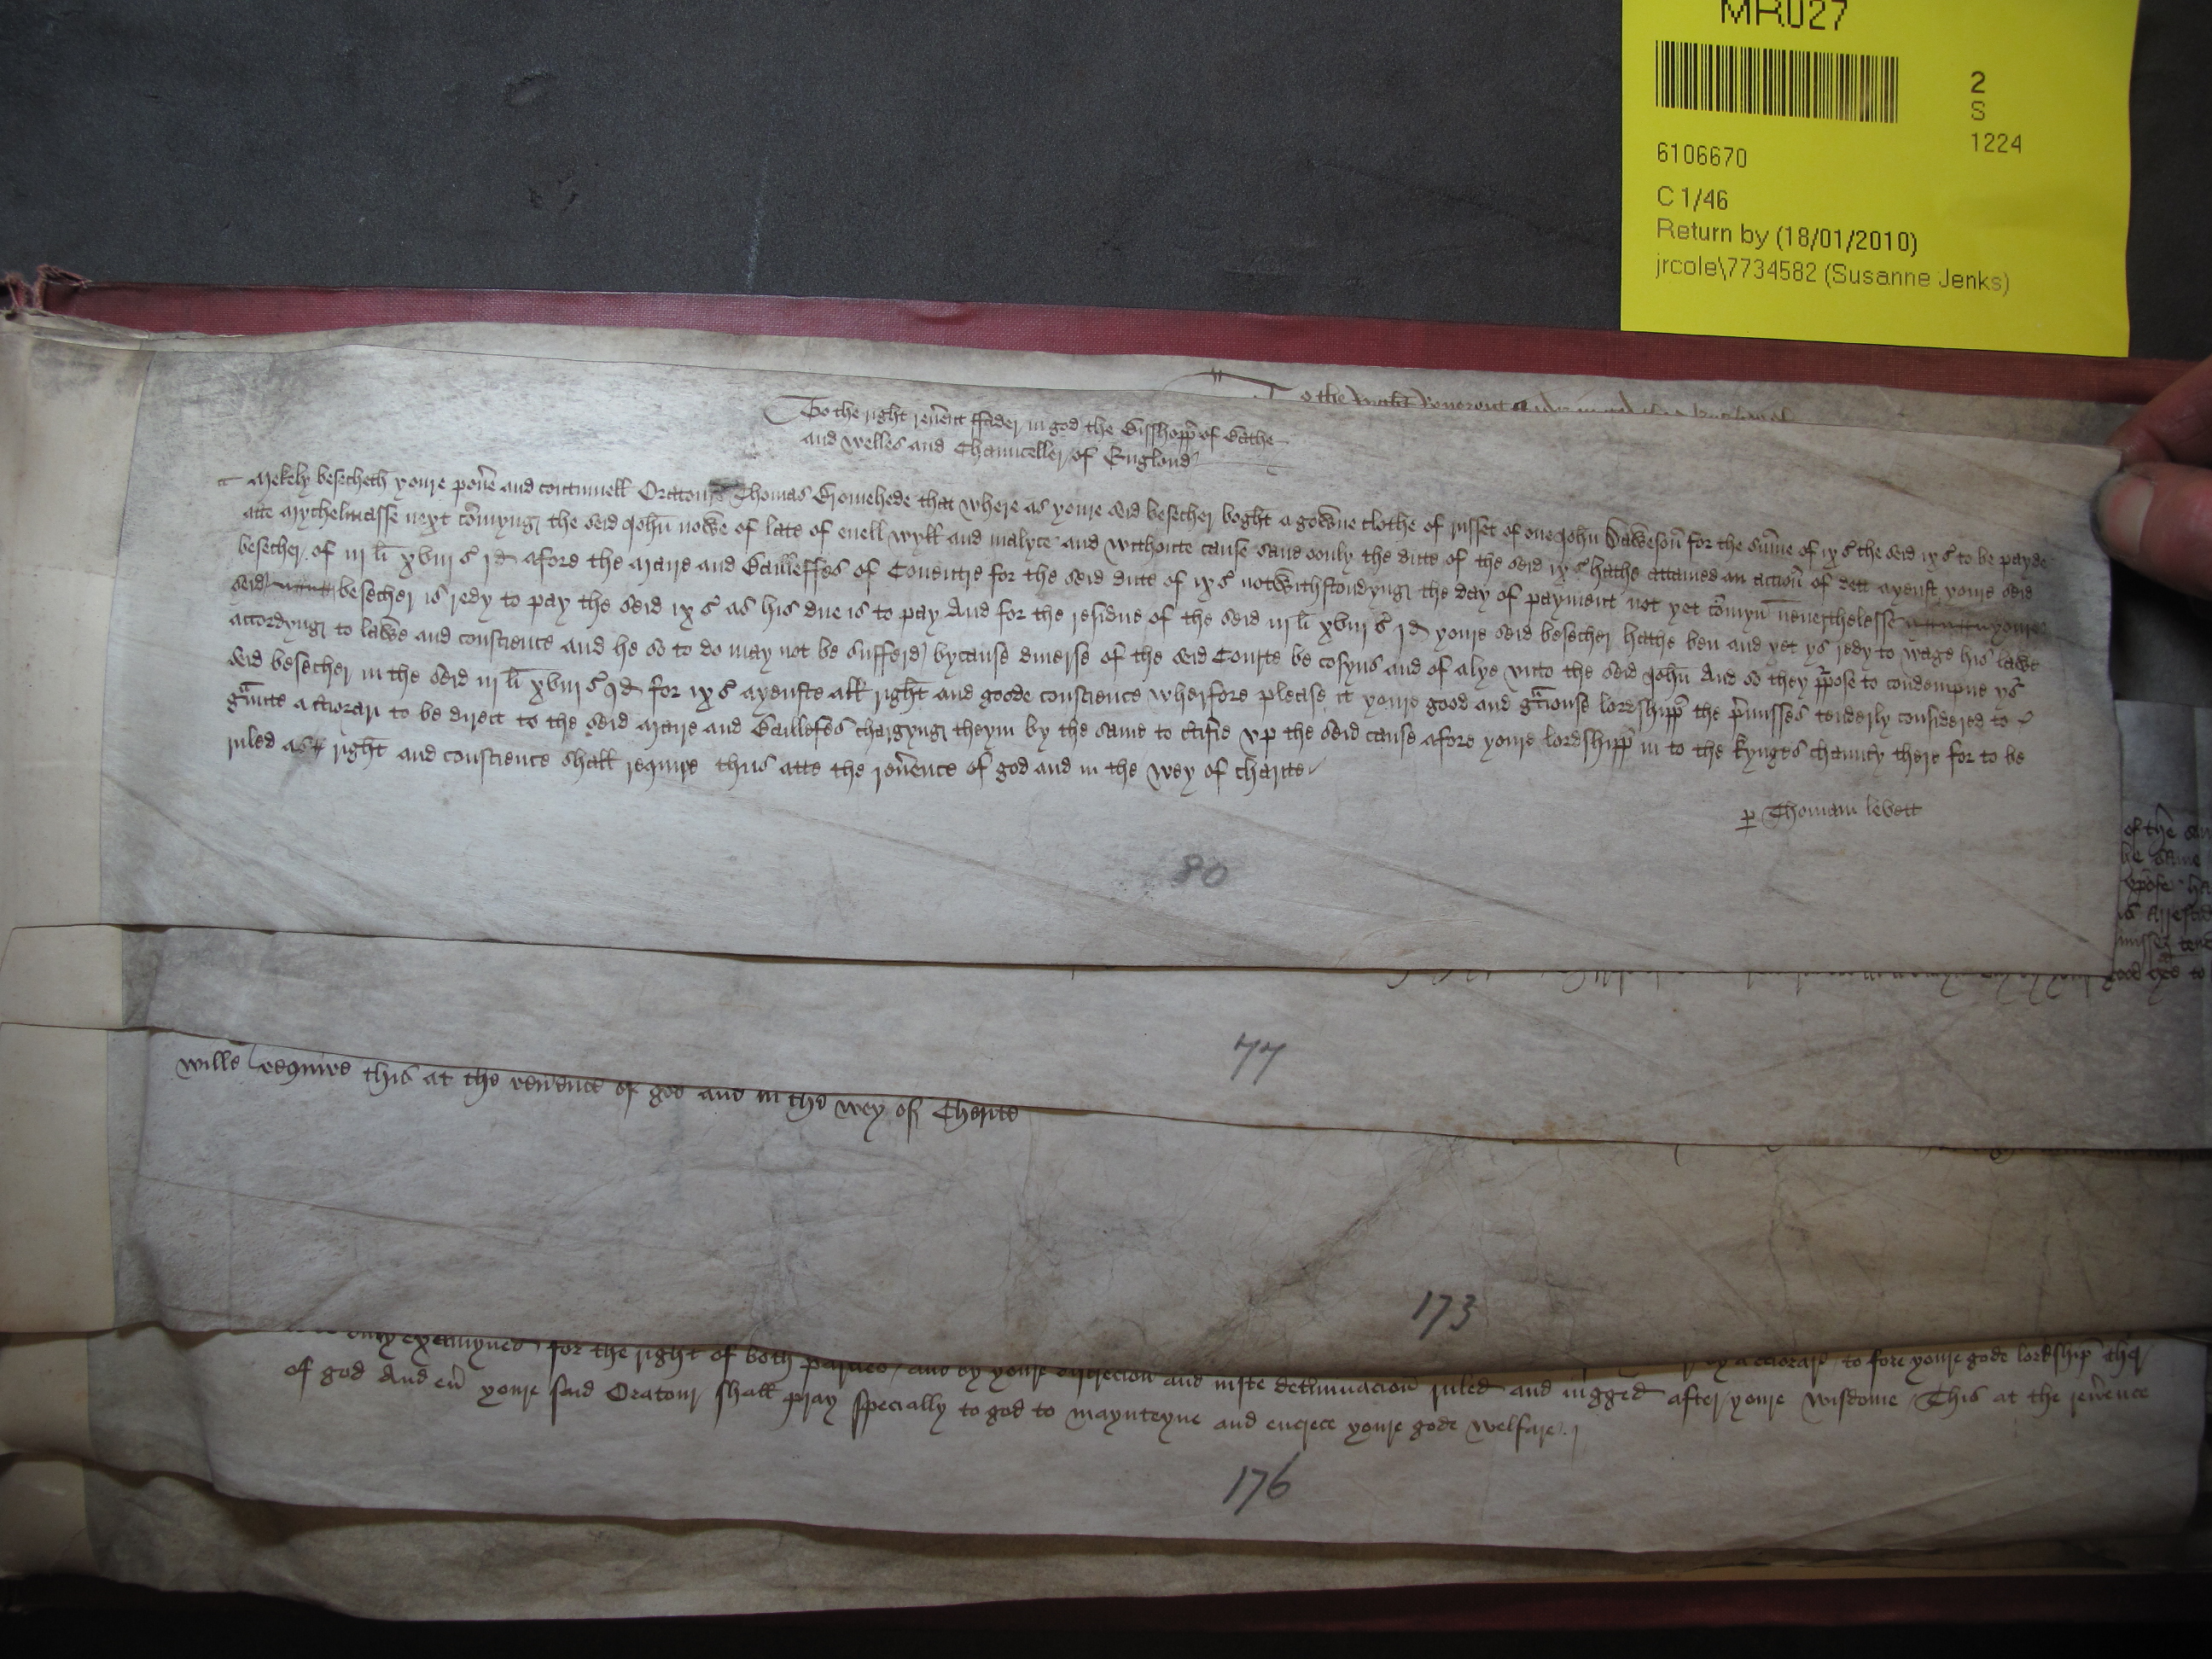 MR027
2
S
1224
6106670
C 1/46
Return by (18/01/2010)
jrcole\7734582 (Susanne Jenks)
To the right reuent ffader in god the Bisshopp of Bathe
and Welles and Chaunceller of Englond
Mekely besecheth youre pore and contynuell Oratour Thomas that where as youre seid besecher boght a gowne clothe of russet of one John Daweson for the sume of ix s the seid ix s to be payde
atte Mychelmasse next comyng the seid John nowe of late of euell wyll and malyce and withoute cause saue oonly the dute of the seid ix s hathe attamed an accion of dett ayenst youre seid
besecher of iii li xviii s id afore the Maire and Baillesses of Couentre for the seid dute of ix s notwithstondyng the day of payment not yet comyn neuerthelesse youre
seid besecher is redy to pay the seid ix s as his due is to pay And for the residue of the seid iii li xviii s id youre seid besecher hathe ben and yet ys redy to wage his lawe
accordyng to lawe and conscience and he so to do may not be sufferd bycause diuerse of the seid Courte be cosyns and of alye vnto the seid John And so they ppose to condempne yr
seid besecher in the seid iii li xviii s id for ix s ayenste all right and goode conscience wherfore please it youre good and gaciouse lordshipp the pmisses tenderly considered to
gaunte a ciorari to be direct to the seid Maire and Baillefes chargyng theym by the same to ctifie vp the seid cause afore youre lordshipp in to the kynges chauncy there for to be
ruled as right and conscience shall require this atte the reuence of god and in the wey of charite
p Thomam levett
80
77
wille require this at the reuence of god and in the wey of Cherite
173
examyned for the right of both parties and by youre discrecion and iuste detminacion ruled and iugged after youre wisdome This at the reuence
of god And eu youre said Oratour shall pray specially to god to maynteyne and encrece youre gode welfare
176